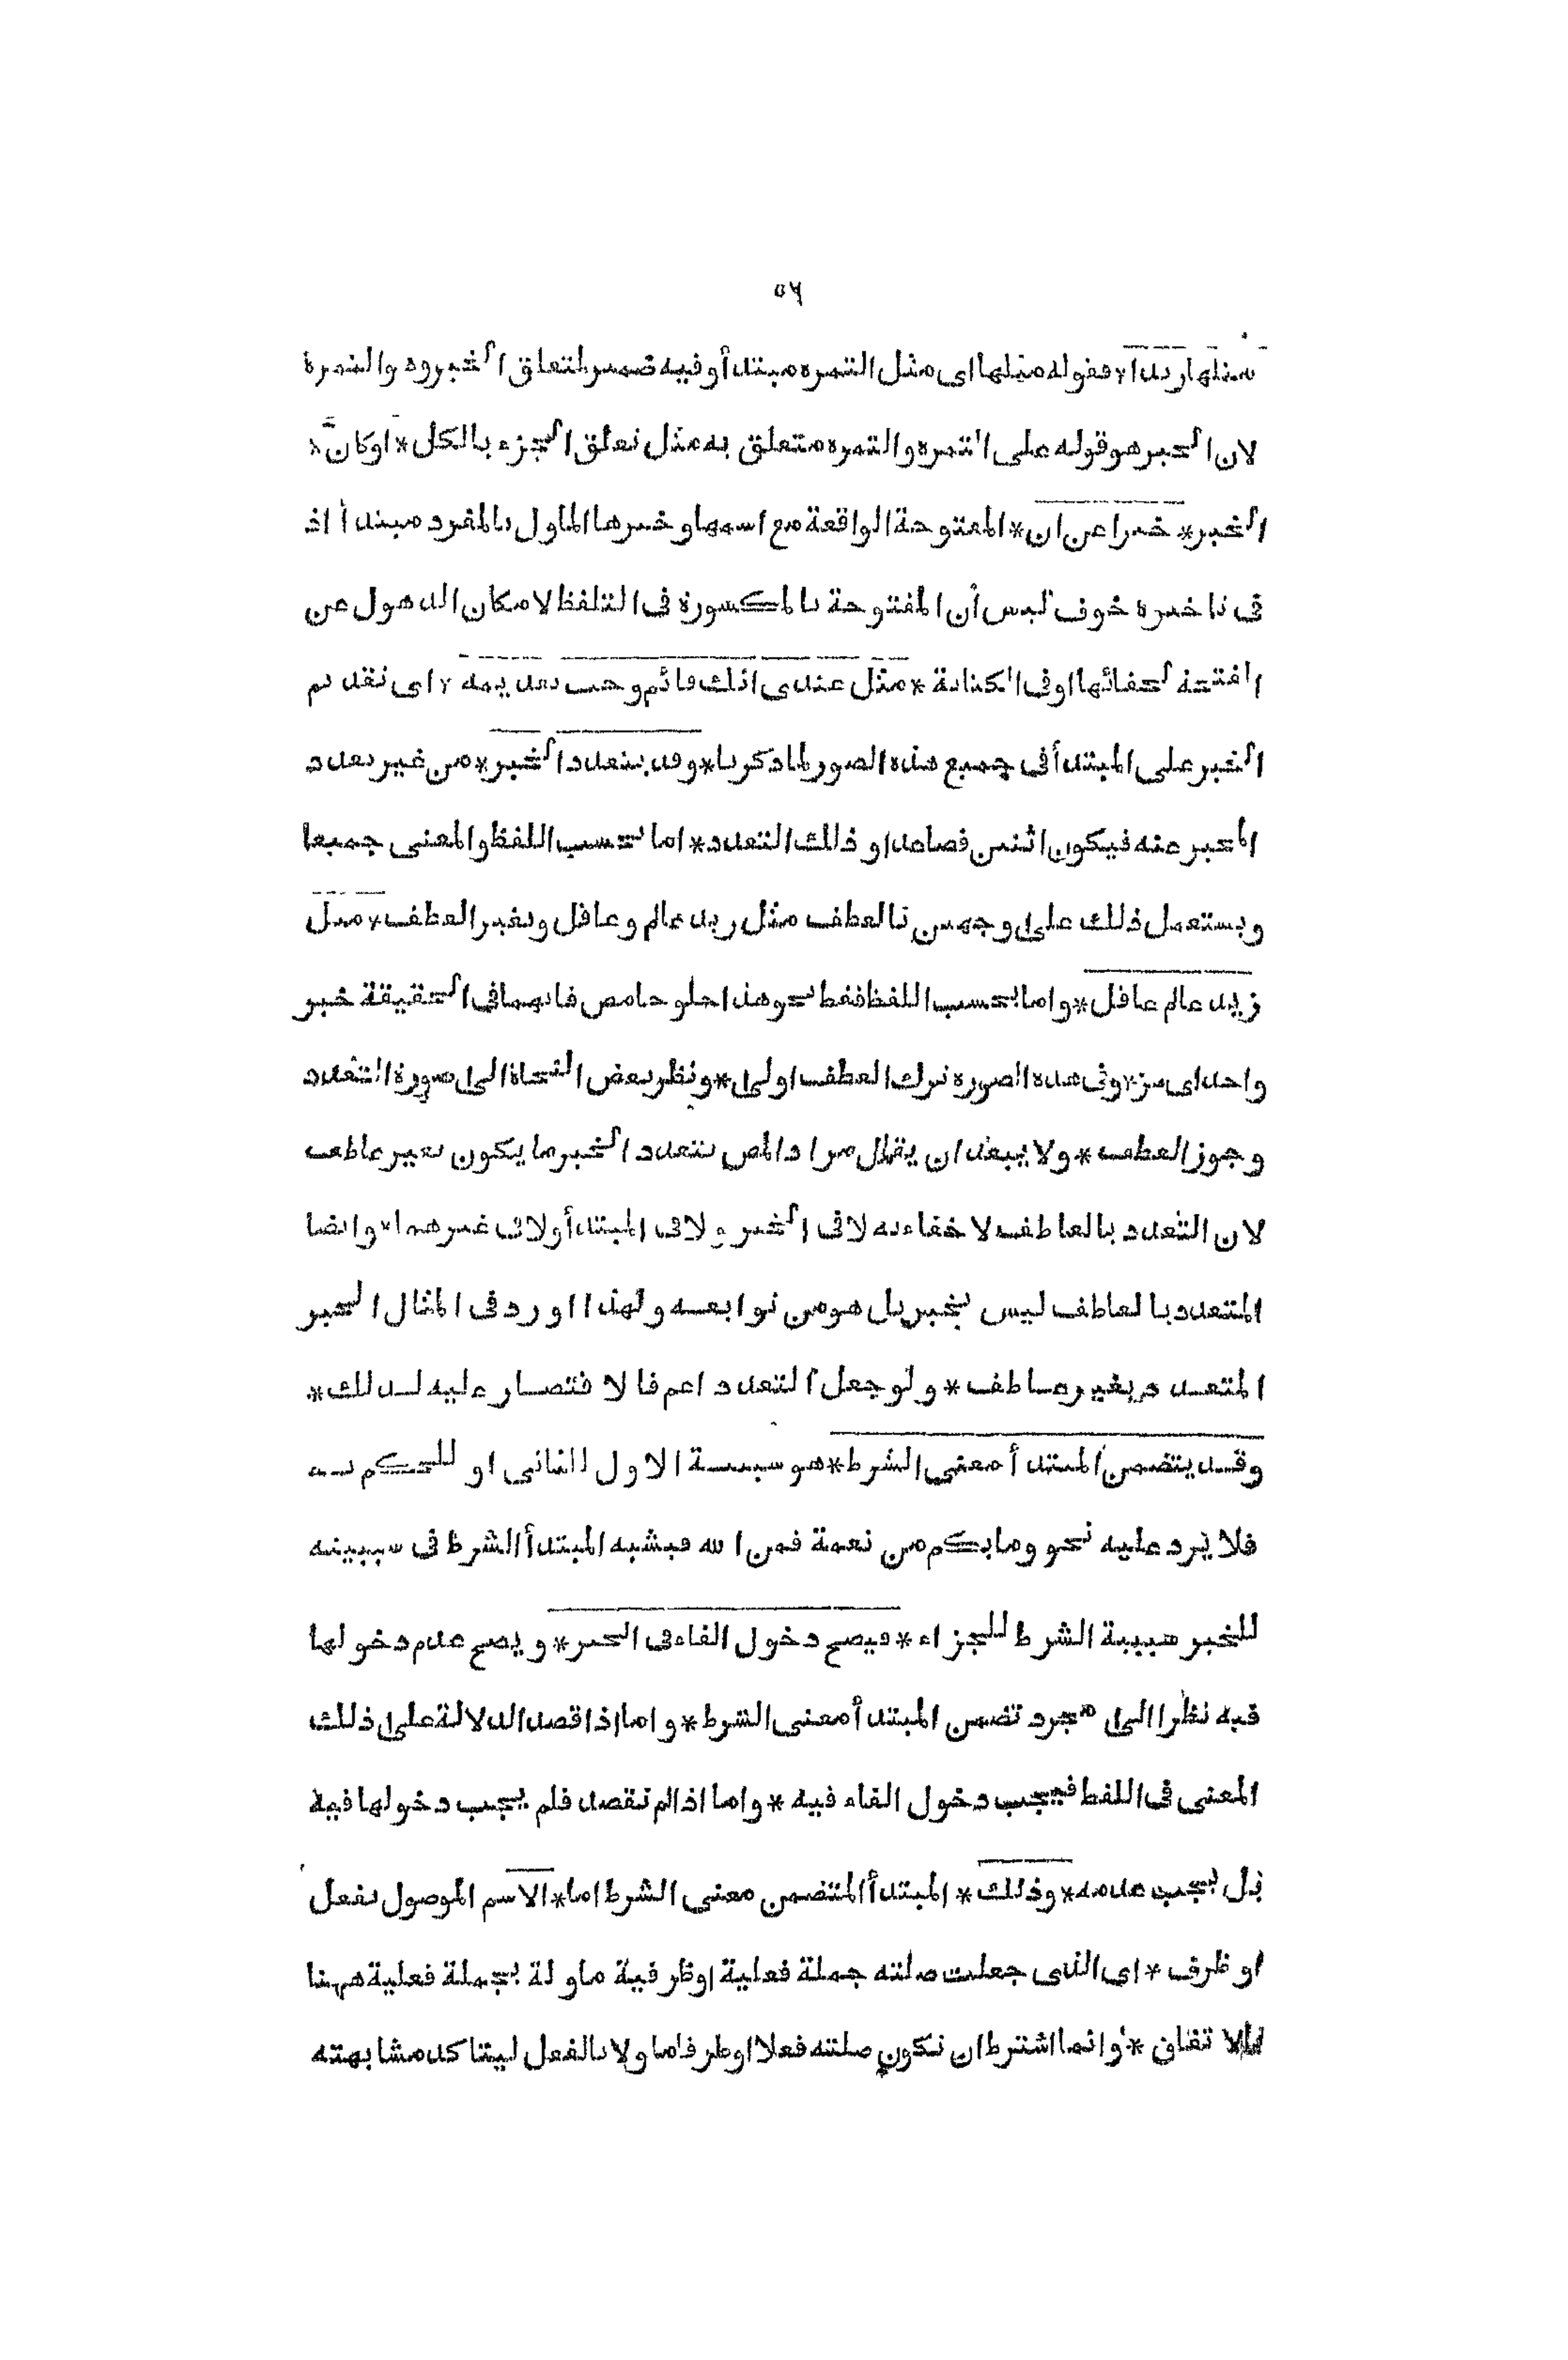 ٥٦
مثلها زبدا * فقوله مثلها اى مثل التمرة مبتدأ وفيه ضمير لمتعلق الخبر وهو التمرة
لان الخبر هو قوله على التمرة والتمرة متعلق به مثل تعلق الجزء بالكل * اوكان *
الخبر * خبرا عن ان * المفتوحة الواقعة مع اسمها وخبرها الماول بالمفرد مبتدأ اذ
فى تاخيره خوف لبس أن المفتوحة بالمكسورة فى التلفظ لامكان الذهول عن
الفتحة لخفائها اوفى الكتابة * مثل عندى انك قائم وجب تقديمه * اى تقديم
الخبر على المبتدأ فى جميع هذه الصور لما ذكرنا * وقد يتعدد الخبر * من غير تعدد
المخبر عنه فيكون اثنين فصاعدا وذلك التعدد * اما بحسب اللفظ والمعنى جميعا
ويستعمل ذلك على وجهين بالعطف مثل زيد عالم وعاقل وبغير العطف * مثل
زيد عالم عاقل * واما بحسب اللفظ فقط نحو هذا حلو حامض فانهما فى الحقيقة خبر
واحد اى مز * وفى هذه الصورة ترك العطف اولى * ونظر بعض النحاة الى صورة التعدد
وجوز العطف * ولا يبعد ان يقال مراد المص بتعدد الخبر ما يكون بغير عاطف
لان التعدد بالعاطف لا خفاء به لا فى الخبر ولا فى المبتدأ ولا فى غيرهما * وايضا
المتعدد بالعاطف ليس بخبر بل هو من توابعه ولهذا اورد فى المثال الخبر
المتعدد بغير عاطف * ولو جعل التعدد اعم فالاقتصار عليه لذلك *
وقد يتضمن المبتدأ معنى الشرط * هو سببية الاول للثانى او للحكم به
فلا يرد عليه نحو وما بكم من نعمة فمن الله فيشبه المبتدأ الشرط فى سببيته
للخبر سببية الشرط للجزاء * فيصح دخول الفاء فى الخبر * ويصح عدم دخولها
فيه نظرا الى مجرد تضمن المبتدأ معنى الشرط * واما اذا قصد الدلالة على ذلك
المعنى فى اللفظ فيجب دخول الفاء فيه * واما اذا لم تقصد فلم يجب دخولها فيه
بل يجب عدمه * وذلك * المبتدأ المتضمن معنى الشرط اما * الاسم الموصول بفعل
او ظرف * اى الذى جعلت صلته جملة فعلية اوظرفية ماولة بجملة فعلية ههنا
بالاتفاق * وانما اشترط ان تكون صلته فعلا اوظرفا ماولا بالفعل ليتاكد مشابهته